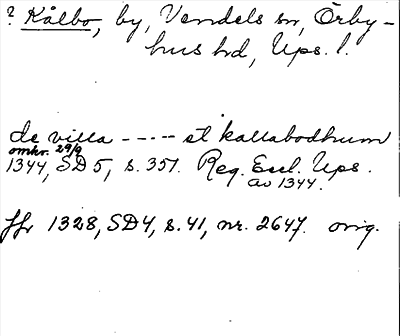 ? Kålbo, by, Vendels sn, Örby-
hus hd, Ups. l.
de villa ----- et kallabodhum
omkr. 29/9
1344, SD 5, s. 351. Reg. Eccl. Ups.
av 1344.
Jfr 1328, SD4, s. 41, nr. 2647. orig.